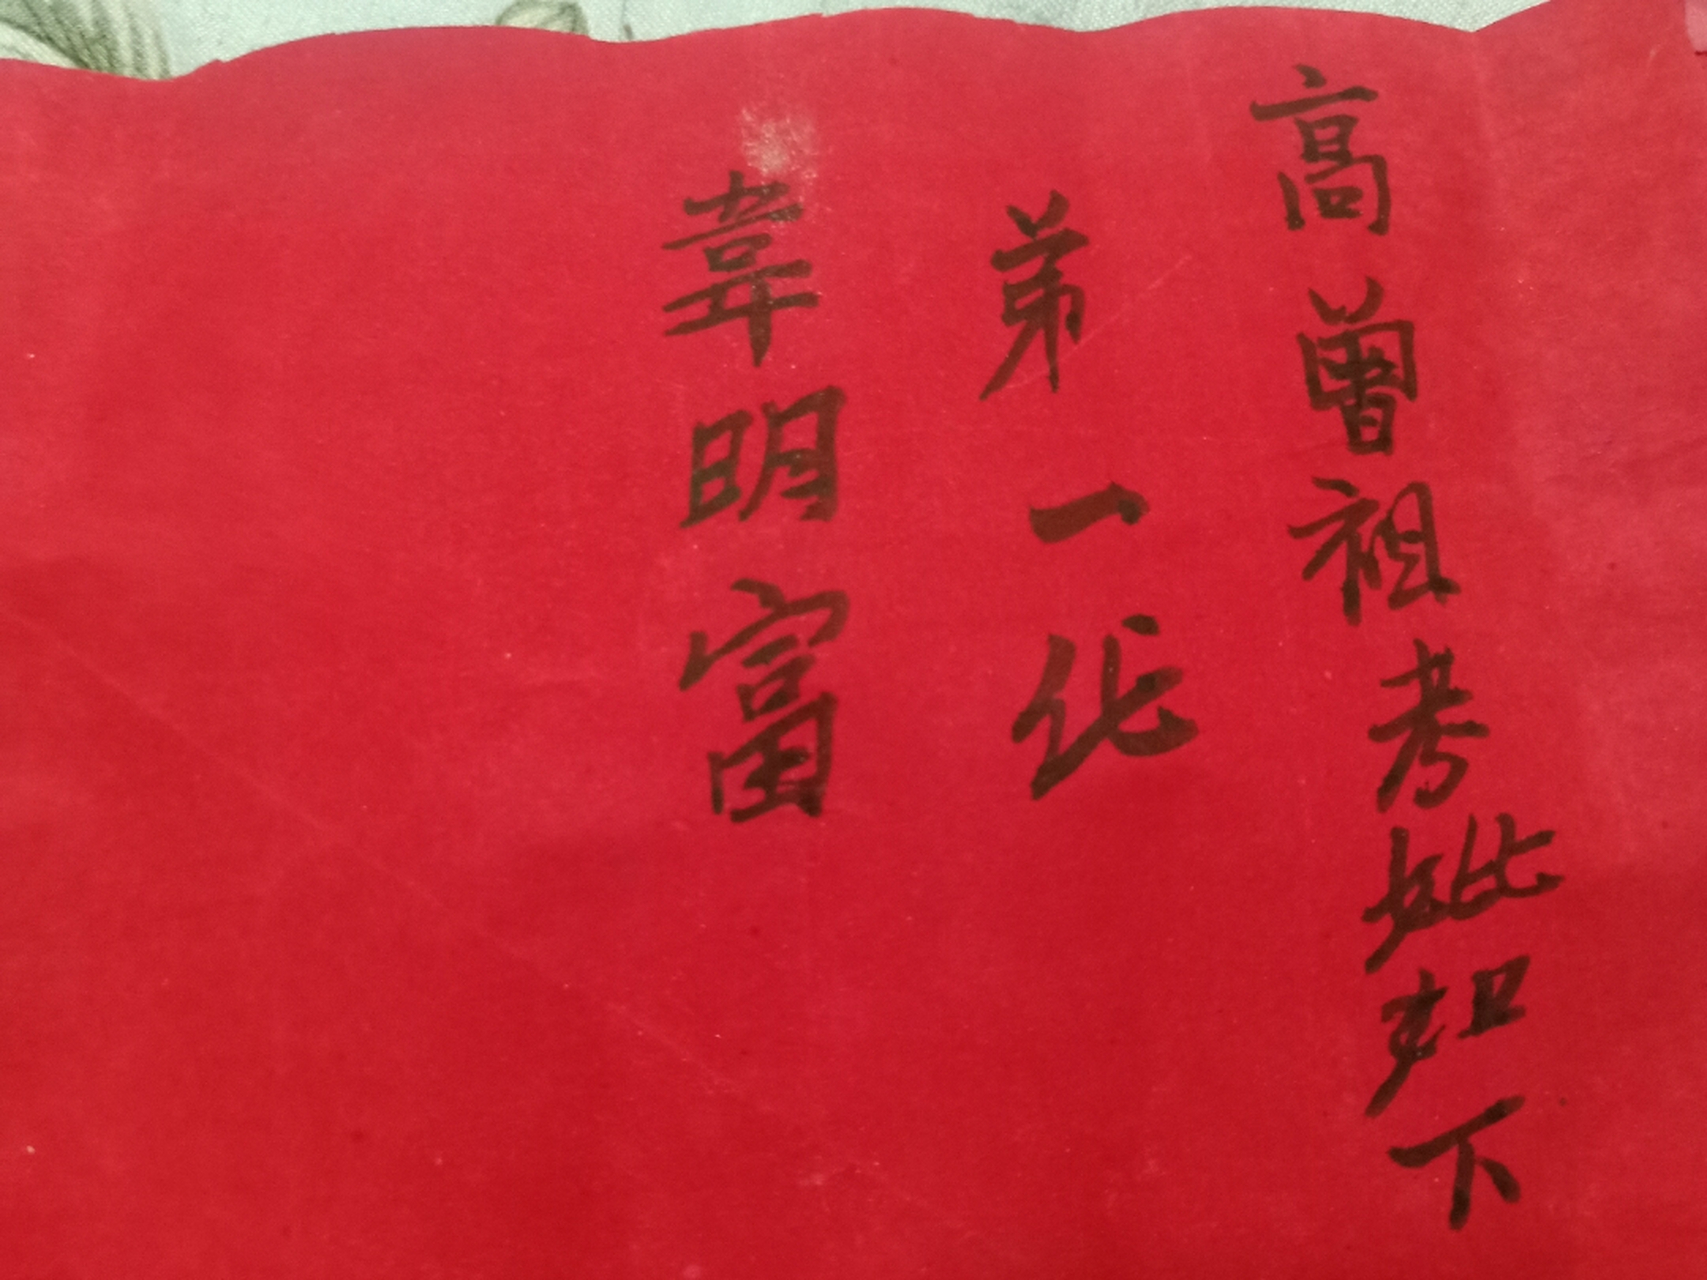 高曾祖考妣如下
第一代
韋明富